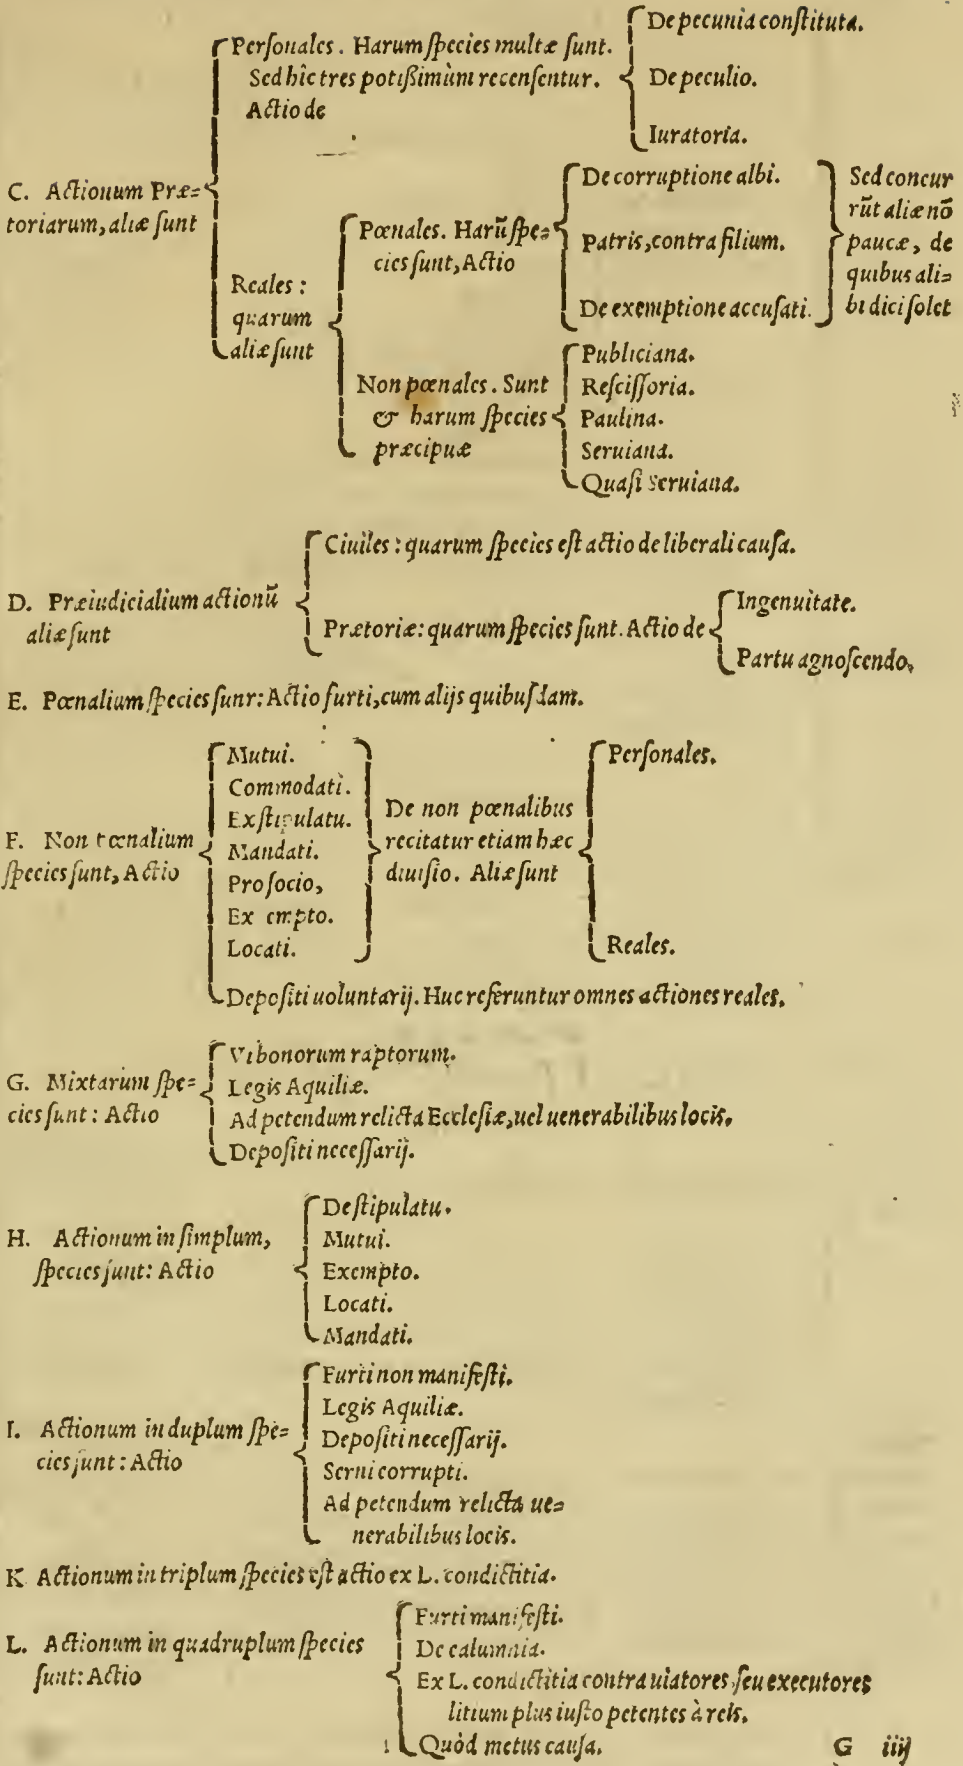 De pecunia conſtituta.
Perſonales. Harum ſpecies multæ ſunt.
Sed hîc tres potißimùm recenſentur.
Actio de
De peculio.
Iuratoria.
C. Actionum Præ=
toriarum, aliæ ſunt
Reales:
quarum
aliæ ſunt
Pœnales. Harũ ſpe=
cies ſunt, Actio
De corruptione albi.
Patris, contra filium.
De exemptione accuſati.
Sed concur
rũt aliæ nõ
paucæ, de
quibus ali=
bi dici ſolet
Non pœnales. Sunt
& harum ſpecies
præcipuæ
Publiciana.
Reſciſſoria.
Paulina.
Seruiana.
Quaſi Seruiana.
D. Præiudicialium actionũ
aliæ ſunt
Ciuiles: quarum ſpecies eſt actio de liberali cauſa.
Prætoriæ: quarum ſpecies ſunt. Actio de
Ingenuitate.
Partu agnoſcendo,
E. Pœnalium ſpecies ſunr: Actio furti, cum alijs quibuſdam.
F. Non pœnalium
ſpecies ſunt, Actio
Mutui.
Commodati.
Ex ſtipulatu.
Mandati.
Pro ſocio,
Ex empto.
Locati.
De non pœnalibus
recitatur etiam hæc
diuiſio. Aliæ ſunt
Perſonales.
Reales.
Depoſiti uoluntarij. Huc referuntur omnes actiones reales.
G. Mixtarum ſpe=
cies ſunt: Actio
Vi bonorum raptorum.
Legis Aquiliæ.
Ad petendum relicta Eccleſiæ, uel uenerabilibus locis.
Depoſiti neceſſarij.
H. Actionum in ſimplum,
ſpecies ſunt: Actio
De ſtipulatu.
Mutui.
Ex empto.
Locati.
Mandati.
I. Actionum in duplum ſpe=
cies ſunt: Actio
Furti non manifeſti.
Legis Aquiliæ.
Depoſiti neceſſarij.
Serui corrupti.
Ad petendum relicta ue=
nerabilibus locis.
K Actionum in triplum ſpecies eſt actio ex L. condictitia.
L. Actionum in quadruplum ſpecies
ſunt: Actio
Furti manifeſti.
De calumnia.
Ex L. condictitia contra uiatores ſeu executores
litium plus iuſto petentes à reis.
Quòd metus cauſa.
G iiij